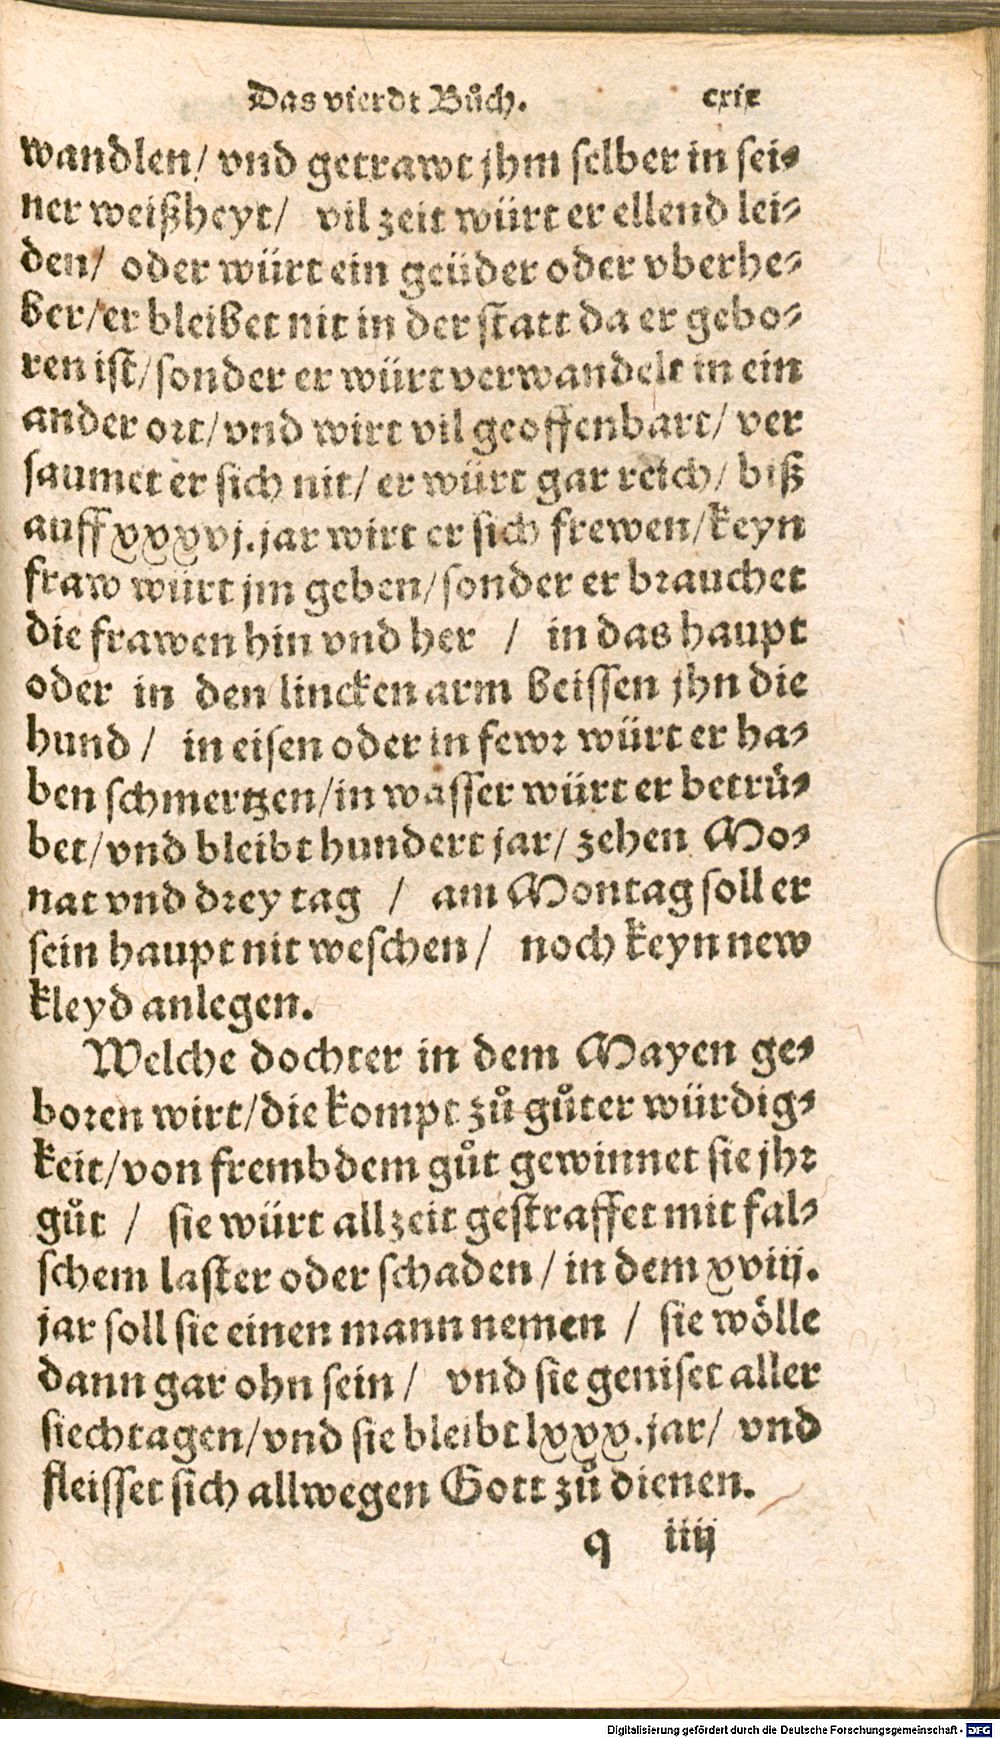 Das vierdt Bůch. cxix
wandlen/ vnd getrawt jhm selber in sei-
ner weißheyt/ vil zeit würt er ellend lei-
den/ oder würt ein geüder oder vberhe-
ber/er bleibet nit in der statt da er gebo-
ren ist/sonder er würt verwandelt in ein
ander ort/vnd wirt vil geoffenbart/ ver
saumet er sich nit/ er würt gar reich/ biß
auff xxxvj.jar wirt er sich frewen/keyn
fraw würt jm geben/sonder er brauchet
die frawen hin vnd her / in das haupt
oder in den lincken arm beissen jhn die
hund / in eisen oder in fewr würt er ha-
ben schmertzen/in wasser würt er betrů-
bet/vnd bleibt hundert jar/ zehen Mo-
nat vnd drey tag / am Montag soll er
sein haupt nit weschen/ noch keyn new
kleyd anlegen.
Welche dochter in dem Mayen ge-
boren wirt/die kompt zů gůter würdig-
keit/von frembdem gůt gewinnet sie jhr
gůt / sie würt allzeit gestraffet mit fal-
schem laster oder schaden/in dem xviij.
jar soll sie einen mann nemen / sie wölle
dann gar ohn sein/ vnd sie geniset aller
siechtagen/vnd sie bleibt lxxx.jar/ vnd
fleisset sich allwegen Gott zů dienen.
q iiij
Digitalisierung gefördert durch die Deutsche Forschungsgemeinschaft - DFG